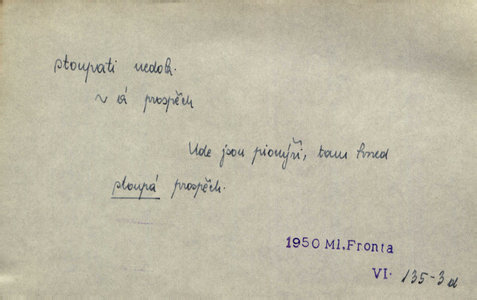 stoupati nedok.
v á prospěch
Kde jsou pionýři, tam hned
stoupá prospěch.
1950 Ml. Fronta
VI. 135-3d